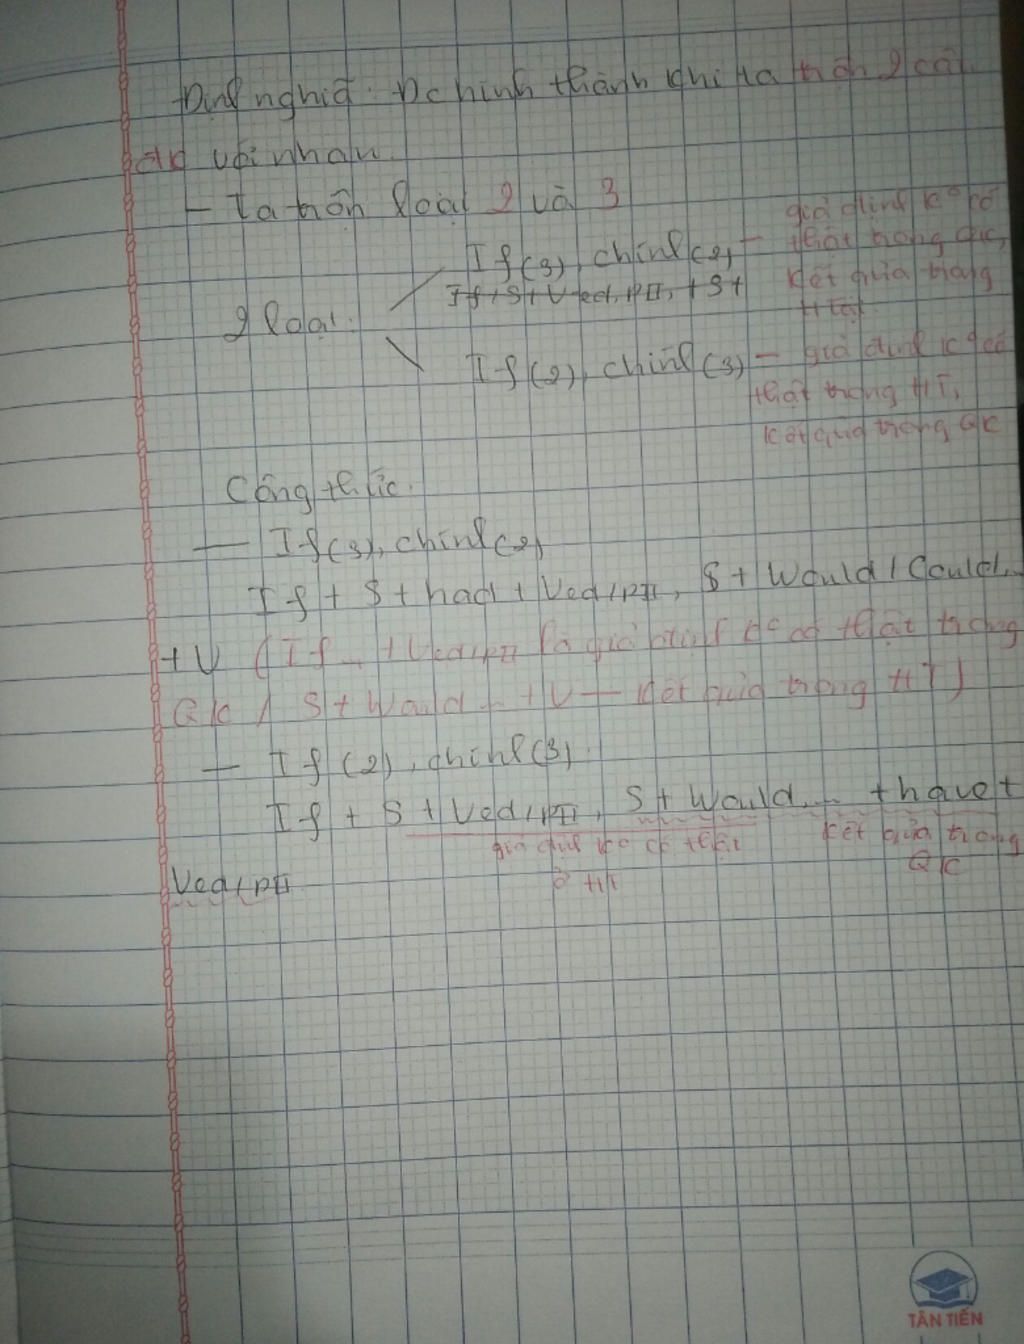 Định nghĩa: Dc hình thành khi ta trộn 2 câu
đk với nhau
- Ta trộn loại 2 và 3
If(3), chính(2) - giả định k° có
thật trong QK,
If + S + Ved/PII, + S +
kết quả trong
HTại
2 loại:
If(2), chính(3) - giả định k° có
thật trong HT,
kết quả trong QK
Công thức:
- If(3), chính(2)
If + S + had + Ved/PII, S + Would / Could...
+ V (If ... + Ved/PII là giả định k° có thật trong
QK / S + Would ... + V - kết quả trong HT)
- If (2), chính(3).
If + S + Ved/PII, S + Would ... + have +
giả định k° có thật
kết quả trong
Ved/PII
ở HT
QK
TÂN TIẾN